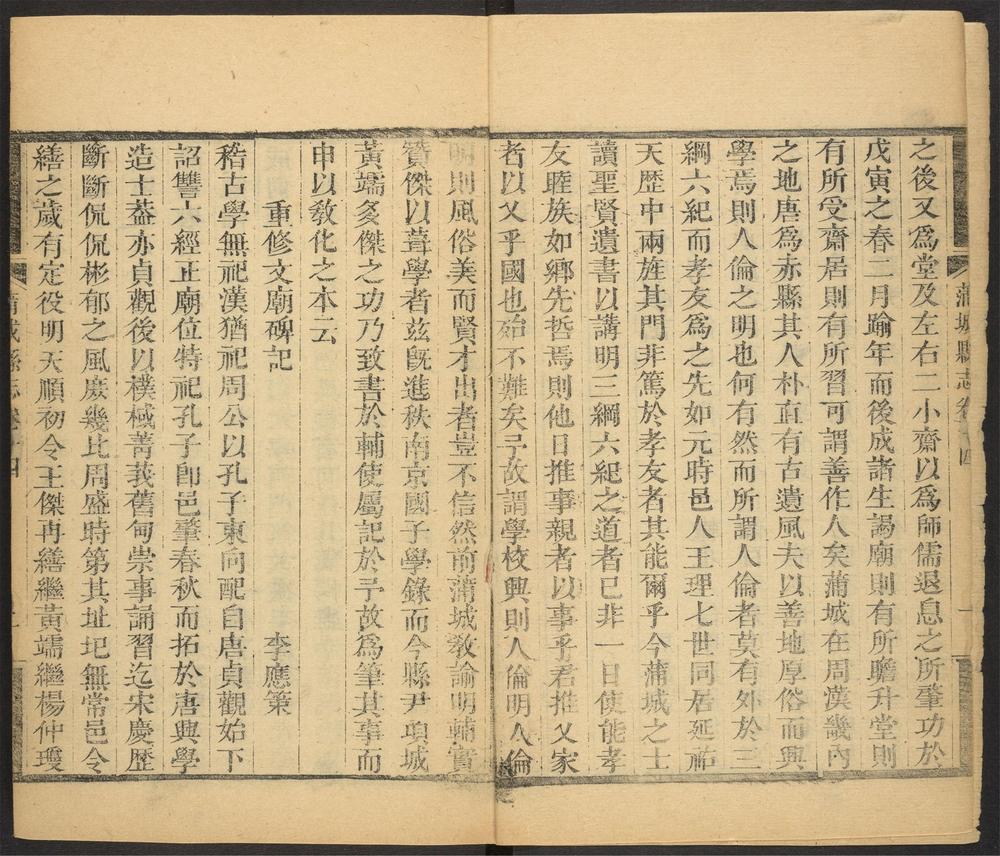 蒲城縣志卷十四
之後又爲堂及左右二小齋以爲師儒退息之所肇功於
戊寅之春二月踰年而後成諸生謁廟則有所瞻升堂則
有所受齋居則有所習可謂善作人矣蒲城在周漢畿內
之地唐爲赤縣其人朴直有古遺風夫以善地厚俗而興
學焉則人倫之明也何有然而所謂人倫者莫有外於三
綱六紀而孝友爲之先如元時邑人王理七世同居延祐
天歷中兩旌其門非篤於孝友者其能爾乎今蒲城之士
讀聖賢遺書以講明三綱六紀之道者已非一日使能孝
友睦族如鄉先哲焉則他日推事親者以事乎君推乂家
者以乂乎國也殆不難矣予故謂學校興則人倫明人倫
明則風俗美而賢才出者豈不信然前蒲城教諭明輔實
贊傑以葺學者茲既進秩南京國子學錄而今縣尹項城
黃𤅬多傑之功乃致書於輔使屬記於予故爲筆其事而
申以教化之本云
重修文廟碑記 李應策
稽古學無祀漢猶祀周公以孔子東向配自唐貞觀始下
詔讐六經正廟位特祀孔子卽邑肇春秋而拓於唐興學
造士葢亦貞觀後以樸棫菁莪舊甸崇事誦習迄宋慶歷
斷斷侃侃彬郁之風庶幾比周盛時第其址圯無常邑令
繕之歲有定役明天順初令王傑再繕繼黃𤅬繼楊仲瓊
蒲城縣志卷十四